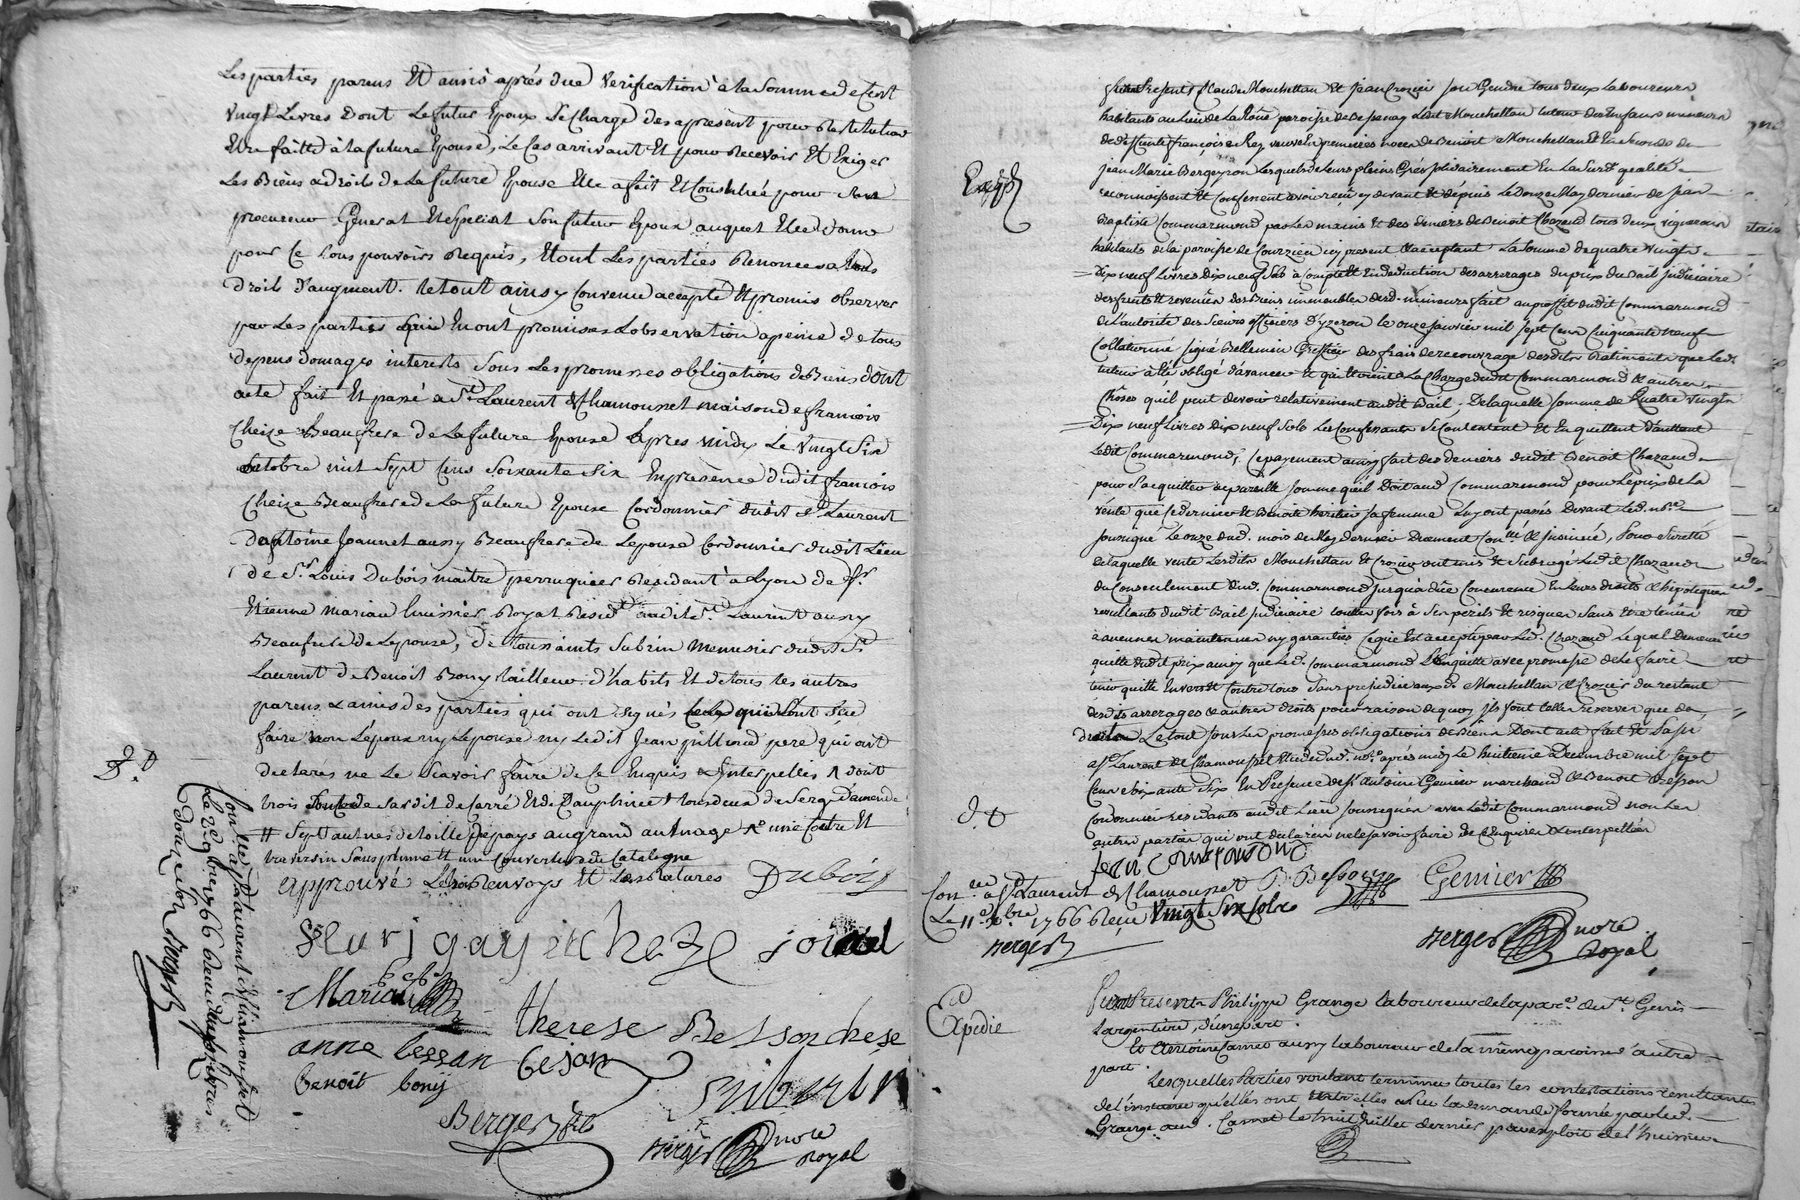 Les parties parens Et amis après due verification à la somme de Cent
vingt Livres dont Le futur Epoux Se Charge des apresent pour Restitution
Etre faitte à la future Epouse, Le Cas arrivant Et pour Recevoir Et Exiger
Les Biens & droits de La future Epouse Elle a fait Et Constitué pour Son
procureur General Et special Son futur Epoux auquel Elle donne
pour Ce tous pouvoirs Requis, Et ont Les parties Renoncé a tous
droit d'augment. Le tout ainsy Convenu accepté Et promis observer
par Les parties qui En ont promises L'observation a peine de tous
depens domages interests Sous Les promesses obligations de Biens dont
acte fait Et passé a St. Laurent de Chamousset maison de francois
Cheize Beaufrere de La future Epouse après midy Le Vingt Six
octobre mil Sept Cens Soixante Six En presence dudit francois
Cheize Beaufrere de La future Epouse Cordonnier dudit St. Laurent
D'antoine Joannet aussy Beaufrere de Lepouse Cordonnier dudit Lieu
de Sr. Louis Dubois maitre perruquier Residant à Lyon de Sr.
Etienne Mariau huissier Royal Resid.t audit St. Laurent aussy
Beaufrere de Lepouse, de toussaints Subrin Menusier dudit St.
Laurent de Benoit Bony tailleur d'habits Et de tous Les autres
parens & amis des parties qui ont Signés
faire non Lépoux ny Lepouse ny Ledit Jean pere qui ont
declarés ne Le Scavoir faire de Ce Enquis & Interpellés dont
trois de Sardit de Carré Et de Dauphiné tous deux de Serge d'amende
# Sept autres de toille de pays au grand aulnage une Coitre Et
traversin Sans plume Et une Couverture de Catalogne
approuvé Les Renvoys Et Les Ratures Dubois
fleuri gayet Cheze
Mariau
therese Besson cheze
anne bessan besan
benoit bony
Subrin
Berger fils
Berger nore royal
Con.lé a St. Laurent de Chamousset
Le 9bre 1766 Livres
douze Berger
furent Presents Claude Mouchettan Et jean Crozier son Gendre tous deux Laboureurs
habitants au Lieu de La paroisse de Bessenay Ledit Mouchettan tuteur des Enfans mineurs
de deffunte françoise Rey veuve En premieres noces de Benoit Mouchettan Et En Secondes de
jean Marie Bergeyron Lesquels de leurs pleins Grés solidairement En La Susd. qualité
reconnoissent Et Confessent avoir reçu cy devant Et depuis Le Douze May dernier de jean
Baptiste Commarmond par Les mains Et des deniers de Benoit Chazaud tous deux vignerons
habitants de la paroisse de Courzieu icy present Et acceptant La Somme de quatre Vingt
Dix neuf Livres Dix neuf Sols à Compte Et En deduction des arrerages du prix du Bail judiciaire
des fruits Et revenus des Biens immeubles desd. mineurs fait au proffit dudit Commarmond
de L'autorité des Sieurs officiers D'yzeron Le onze janvier mil Sept Cens Cinquante neuf
Collationné Signé Bellemin Greffier des frais de recouvrage desdits Batiments que Led.
tuteur à Eté obligé d'avancer Et qui Etoient à La Charge dudit Commarmond Et autres
Choses qu'il peut devoir relativement audit Bail, De laquelle Somme de Quatre Vingt
Dix neuf Livres Dix neuf Sols Les Confessants Se Contentent Et En quittent D'autant
Ledit Commarmond; Ce payement ainsy fait des Deniers dudit Benoit Chazaud
pour S'acquitter de pareille Somme qu'il Doit aud. Commarmond pour Le prix de La
vente que Ce dernier Et Benoite Berthier Sa femme Luy ont passés Devant Led. nore
soussigné Le onze dud. mois de May dernier Duement Con.lé & insinué, Pour Sureté
de laquelle vente Lesdits Mouchettan Et Crozier ont mis Et Subrogé Ledit Chazaud
du Consentement Dud. Commarmond jusqu'à düe Concurence En leurs droits & hipoteques
resultants dudit Bail judiciaire toutes fois à Ses perils Et risques Sans Etre tenus
à aucunes maintenues ny garanties Ce qui Est accepté par Led. Chazaud Lequel Demeure
quitte dudit prix ainsy que Led. Commarmond L'En quitte avec promesse de Le faire
tenir quitte Envers Et Contre tous Sans prejudice auxd. Mouchettan & Crozier du restant
desdits arrerages & autres droits pour raison de quoy Ils font telles reserves que de
droit Le tout Sous Les promesses obligations de Biens Dont acte fait Et Passé
a St. Laurent de Chamousset Etude dud. nore après midy Le huitieme Decembre mil Sept
Cens Soixante Six En Presence de Sr. Antoine Genier marchand & Benoit Besson
Cordonnier residants audit Lieu Soussignés avec Ledit Commarmond non Les
autres parties qui ont declarés ne le Savoir faire de Ce Enquises & interpellées
jean Commarmond
Con.lé a St. Laurent de Chamousset B. Besson Genier
Le 11e. Xbre 1766 Reçu Vingt Six Sols
Berger
Berger nore royal
Expedié
Furent Presents Philippe Grange laboureur de la par.e de St. Genis
L'argentiere, d'une part.
Et Antoine Carret aussy laboureur de la même paroisse d'autre
part.
Lesquelles Parties voulant terminer toutes les contestations resultantes
de l'instance qu'elles ont entr'elles a Sa demande formée par led.
Grange aud. Carret le huit Juillet dernier par exploit de l'huissier